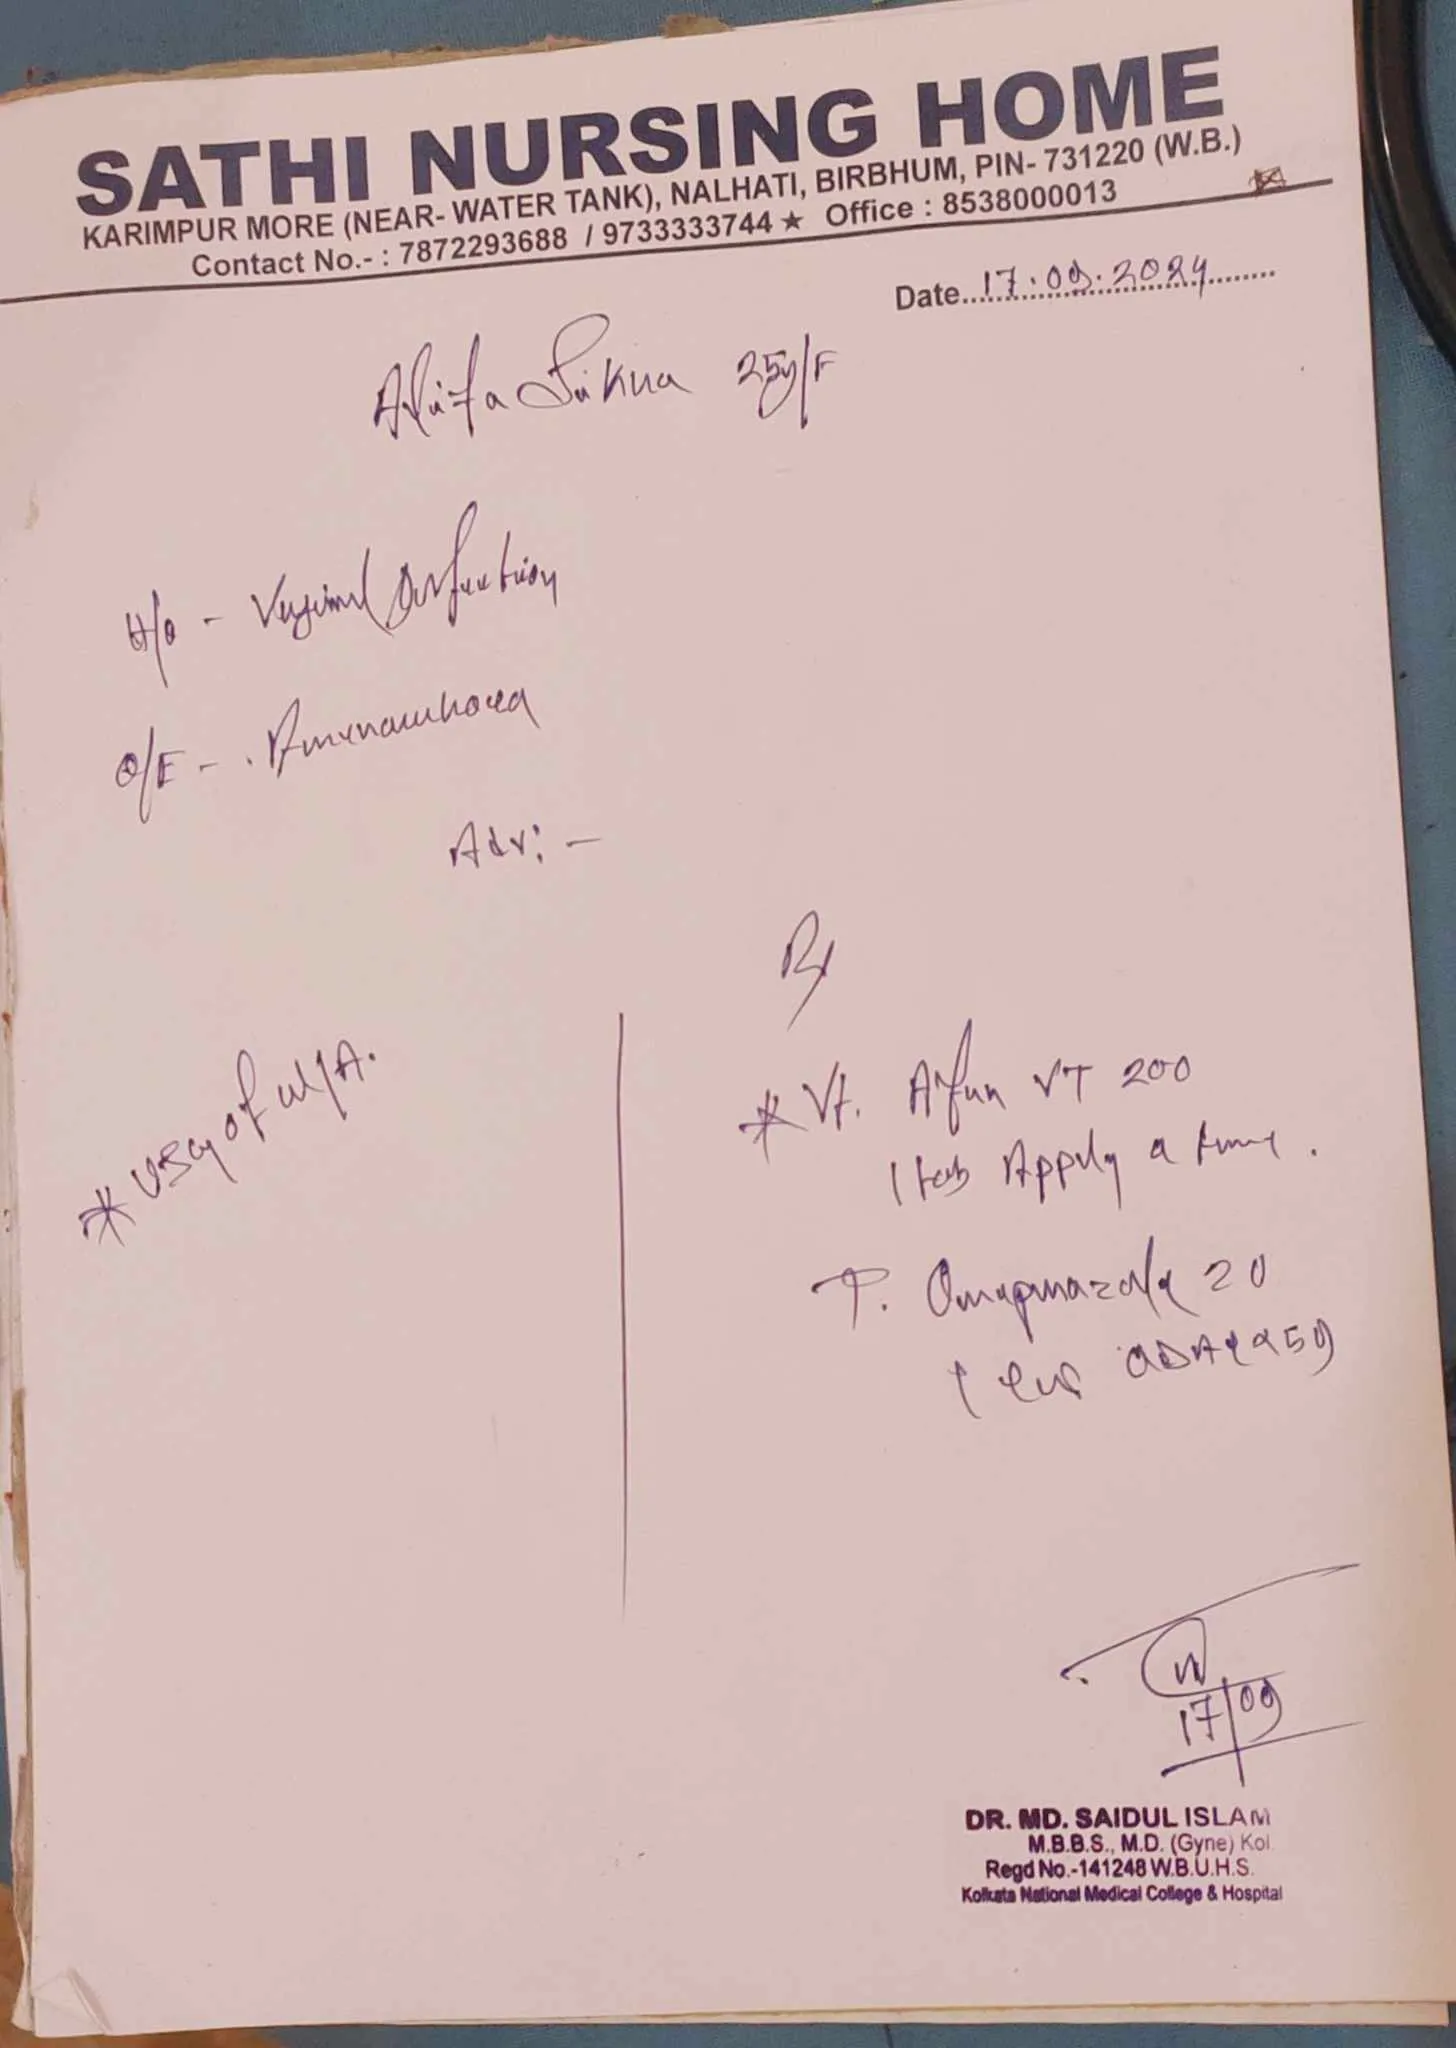 SATHI NURSING HOME
KARIMPUR MORE (NEAR- WATER TANK), NALHATI, BIRBHUM, PIN- 731220 (W.B.)
Contact No.- : 7872293688 / 9733333744 ★ Office : 8538000013
Date 17.09.2024
25y/F
H/o - Vaginal Infection
O/E -
Adv: -
Rx
* USG of W/A.
* Vt. VT 200
1 tab Apply a time.
T. 20
1
17/09
DR. MD. SAIDUL ISLAM
M.B.B.S., M.D. (Gyne) Kol.
Regd No.-141248 W.B.U.H.S.
Kolkata National Medical College & Hospital